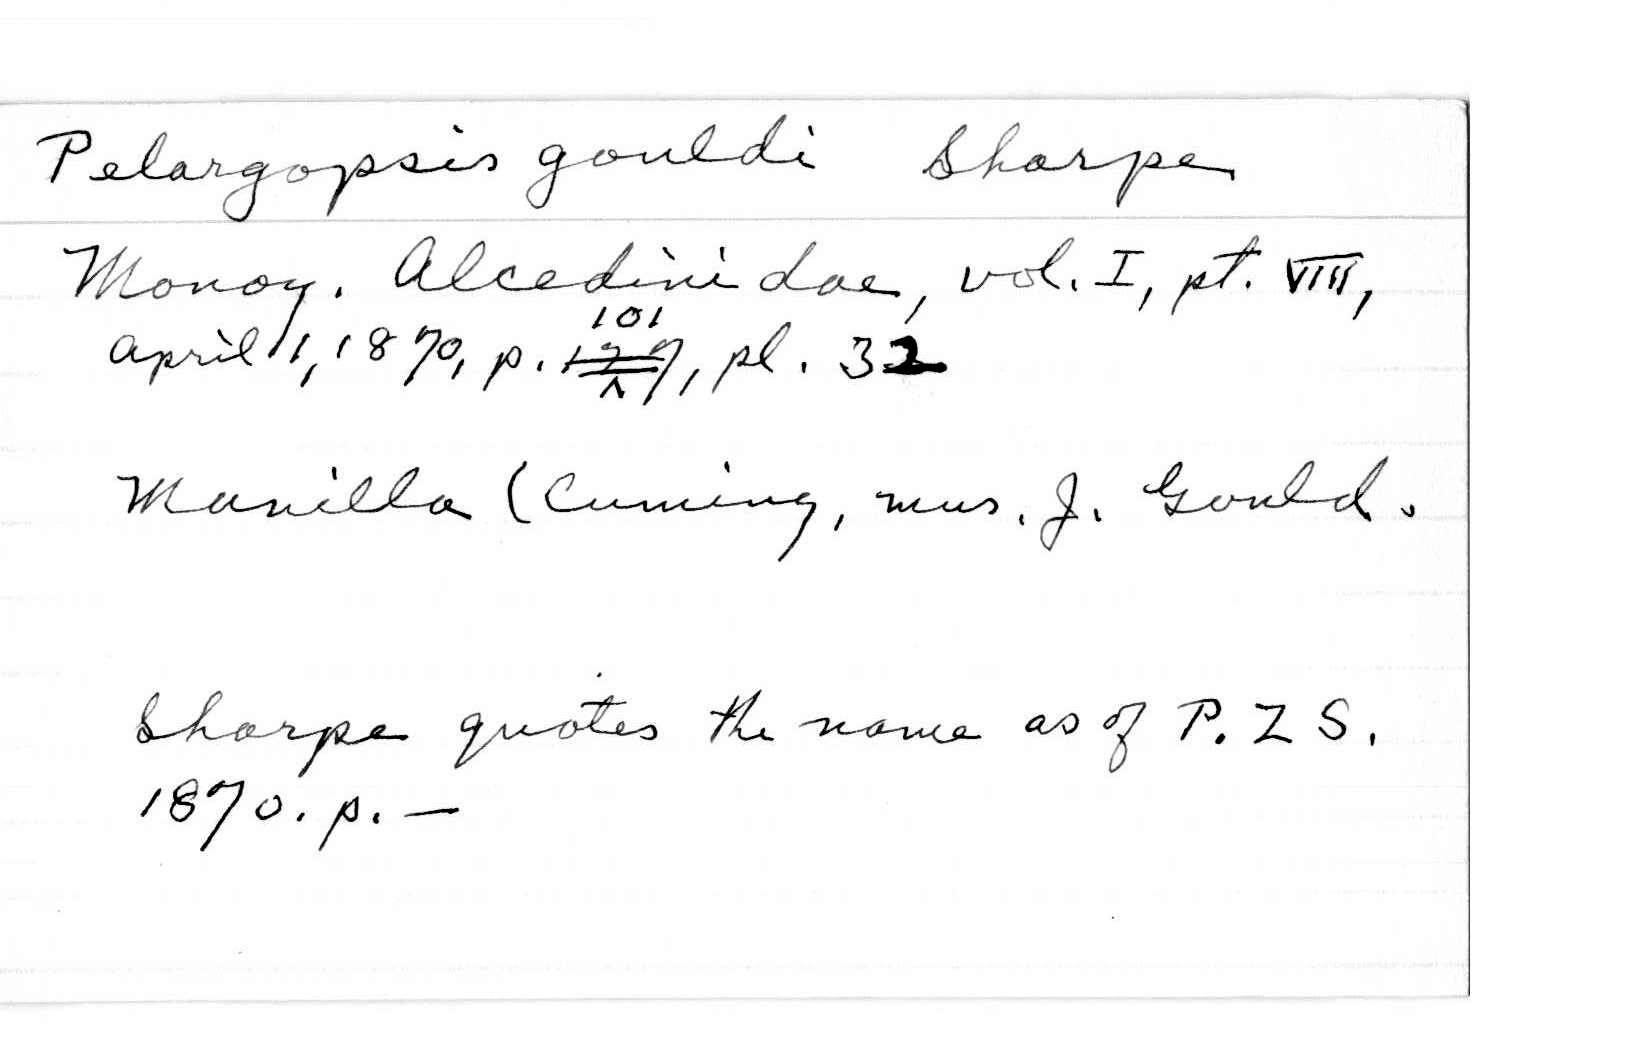 Pelargopsis gouldi Sharpe
Monog. Alcedinidae, vol. I, pt. VIII,
April 1, 1870, p. 101, pl. 32
Manilla (Cuming, mus. J. Gould.
Sharpe quotes the name as of P. Z S.
1870. p. —